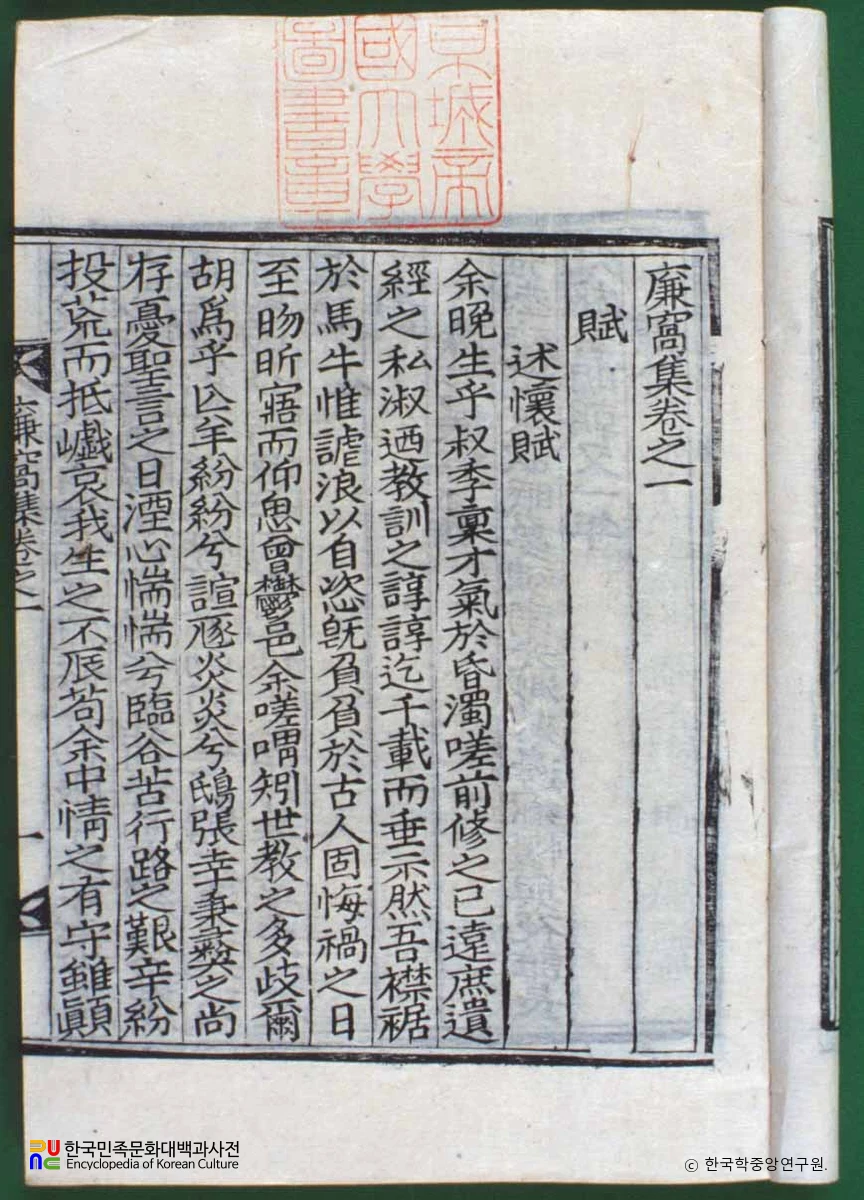 京城帝
國大學
圖書章
廉窩集卷之一
賦
述懷賦
余晚生乎叔季稟才氣於昏濁嗟前修之已遠庶遺
經之私淑迺教訓之諄諄迄千載而垂示然吾襟裾
於馬牛惟謔浪以自恣旣負負於古人固悔禍之日
至昒昕寤而仰思曾欝邑余嗟喟矧世教之多歧爾
胡爲乎𠃔羊紛紛兮諠豗炎炎兮鴟張幸秉彝之尚
存憂聖言之日湮心惴惴兮臨谷苦行路之艱辛紛
投荒而抵巇哀我生之不辰苟余中情之有守雖顚
廉窩集卷之一
一
한국민족문화대백과사전
Encyclopedia of Korean Culture
© 한국학중앙연구원.